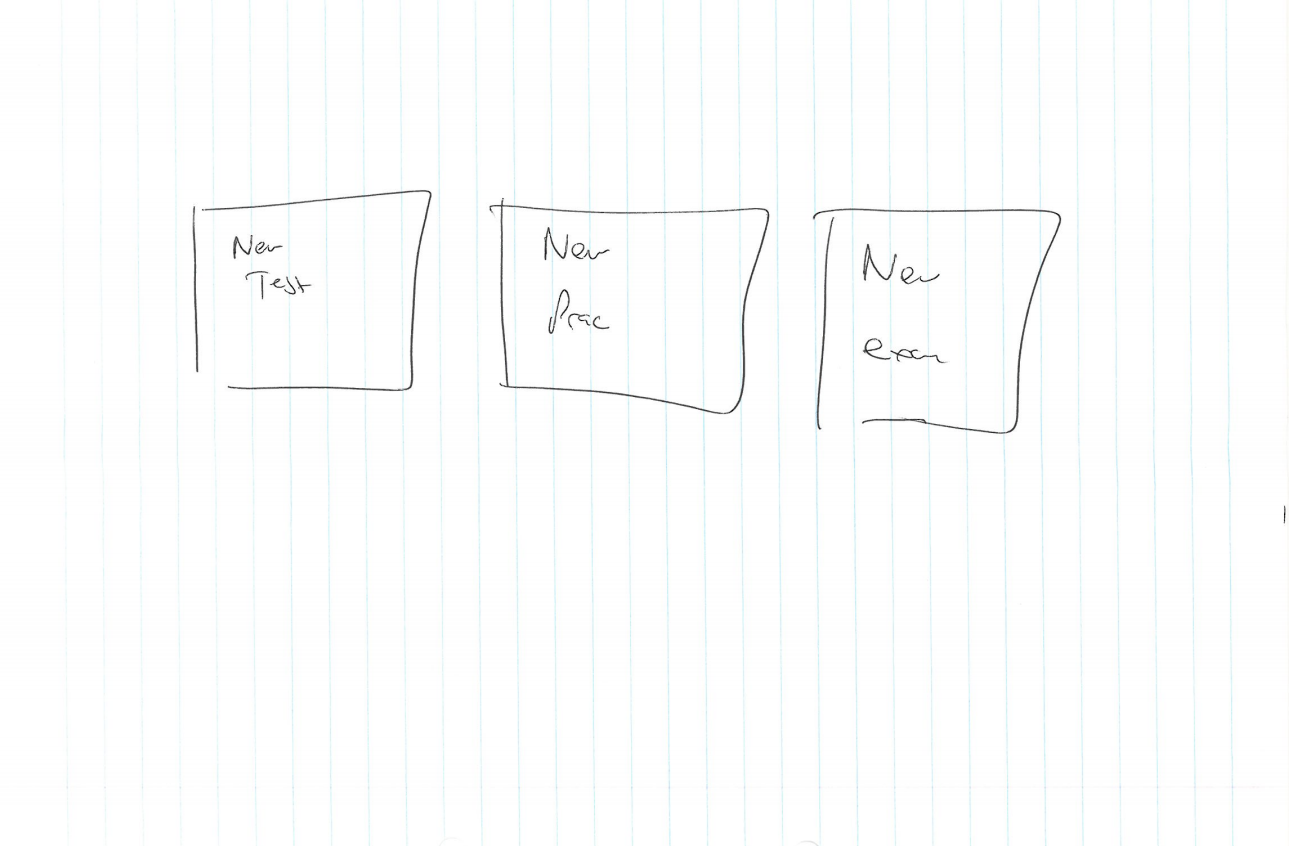 New
Test
New
Prac
New
exam